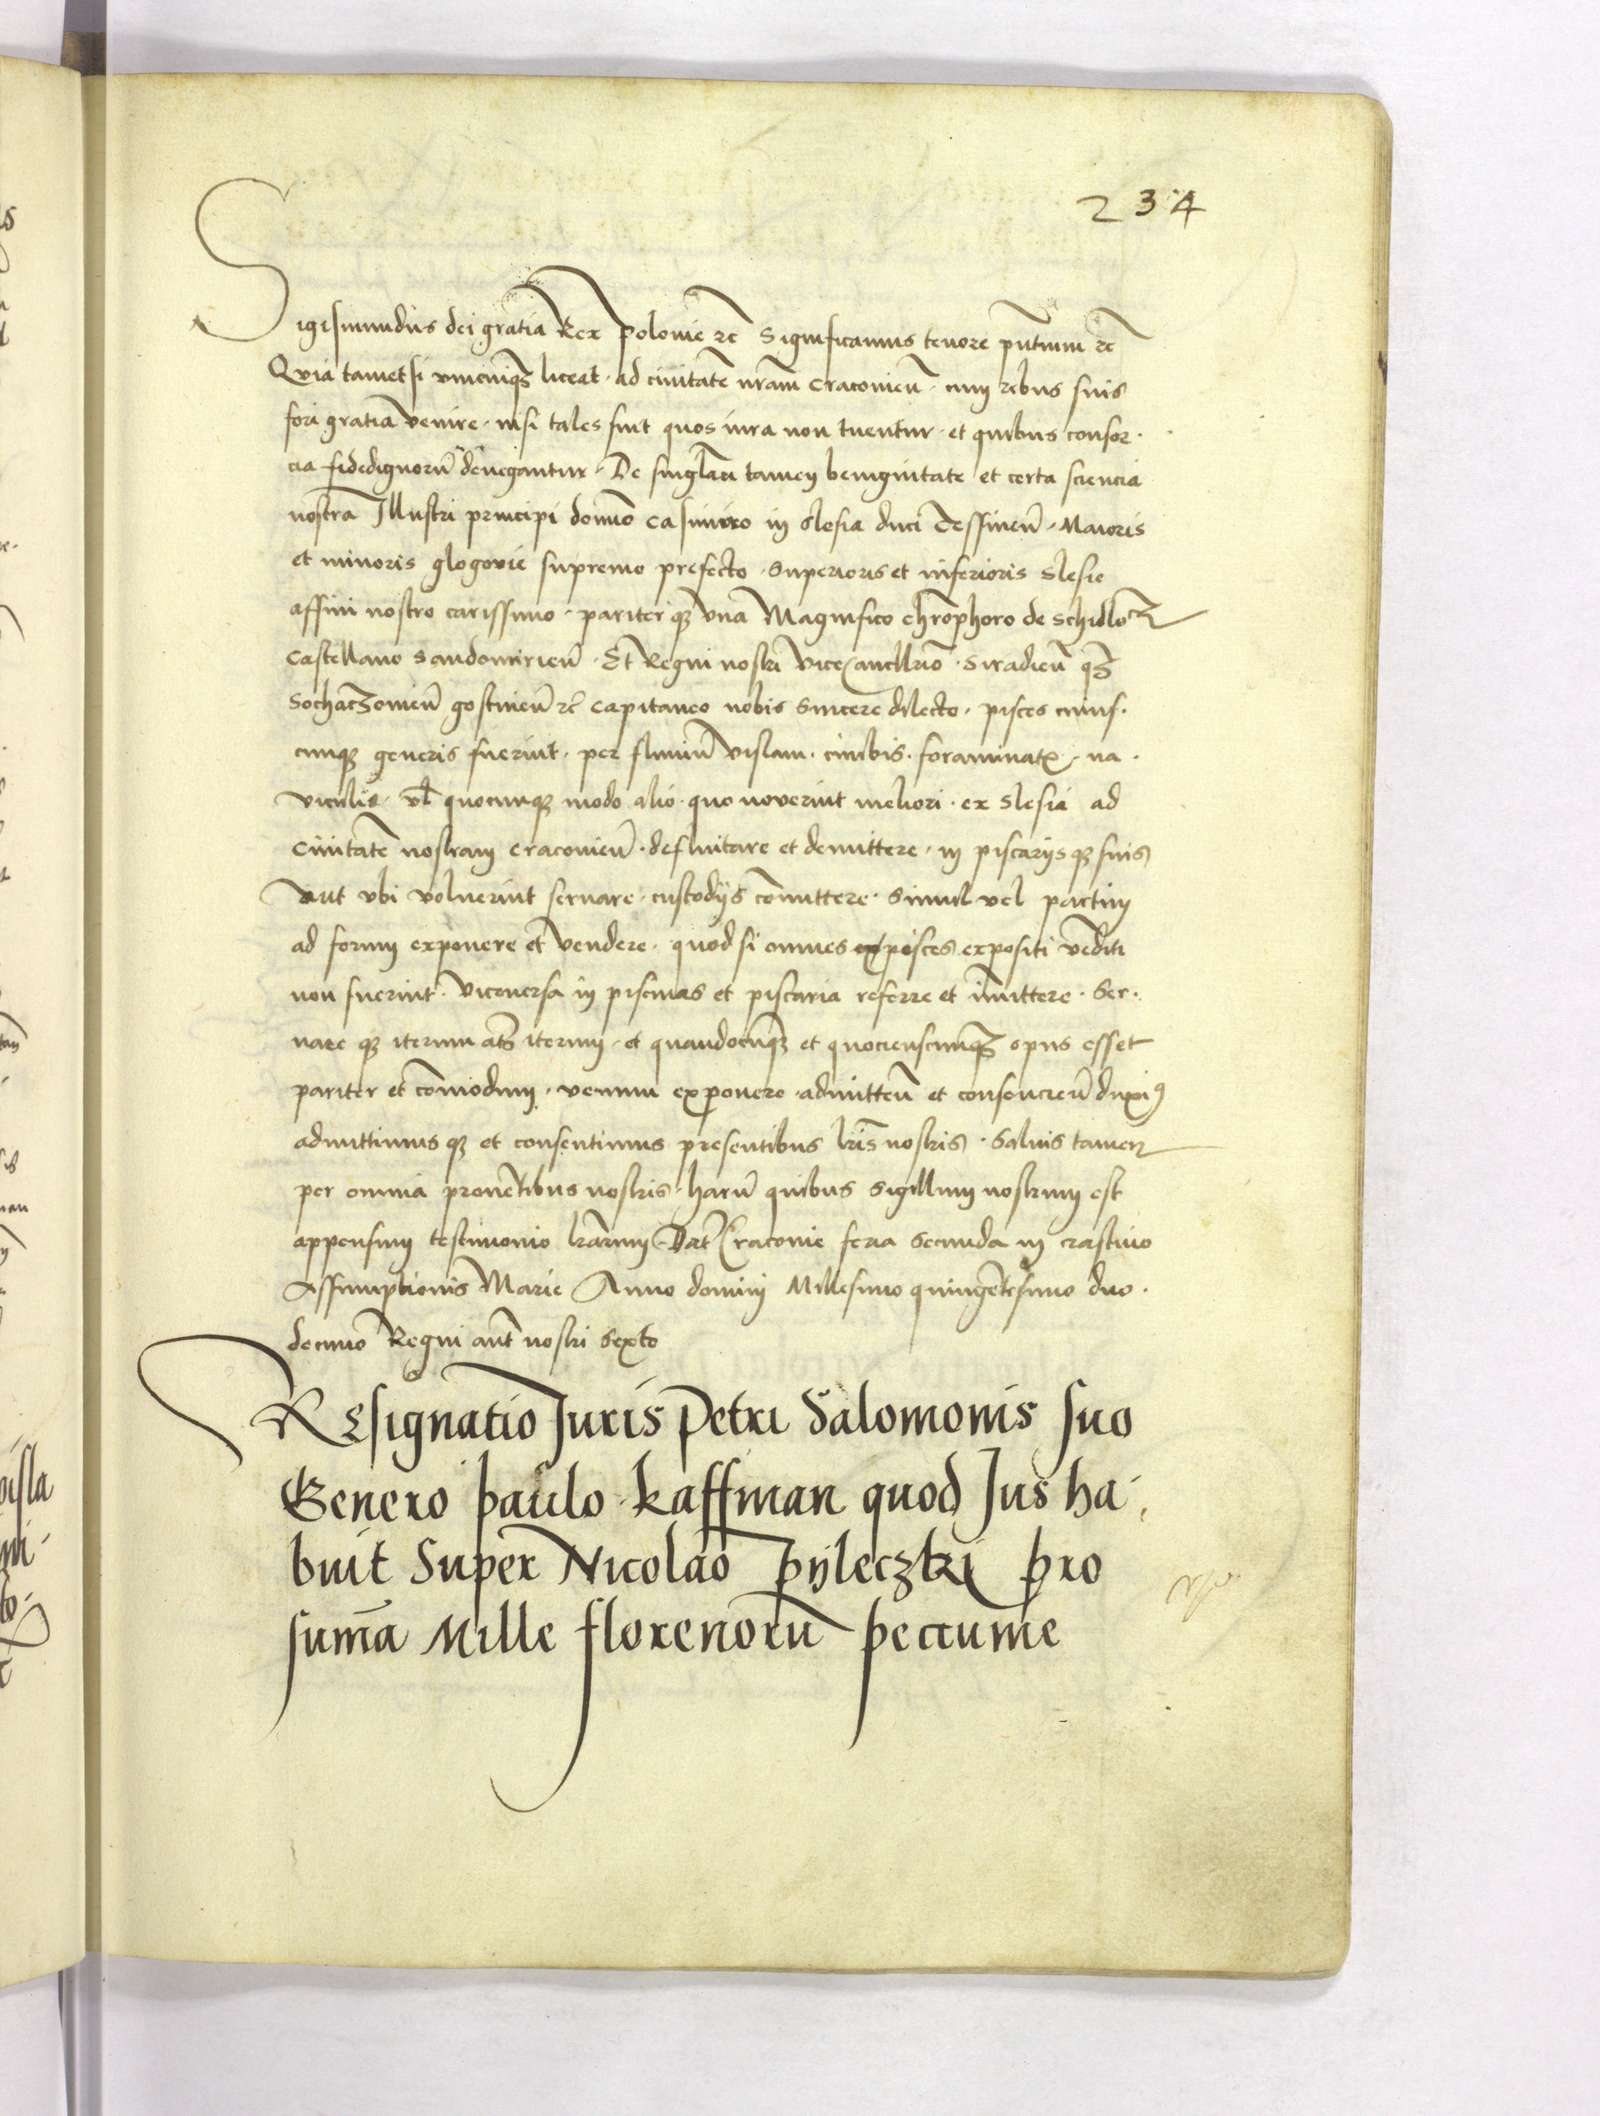 234
Sigismundus dei gratia Rex polonie rc̄ Significamus tenore pn̄tium rc̄
Quia tametsi unicuiqꝫ liceat · ad civitatē nrām Cracovien̄ · cum rebus suis
fori gratia venire · nisi tales sint quos iura non tuentur · et quibus consor·
cia fidedignorū denegantur · De singlāri tamen benignitate et certa sciencia
nostra Illustri principi domīo Casimiro in Slesia duci Tessinen̄ · Maioris
et minoris glogovie supremo prefecto · Superioris et inferioris Slesie
affini nostro carissimo · pariterqꝫ una Magnifico chrōphoro de Schidlo
Castellano Sandomirien̄ · Et Regni nostri Vicecancellrīo · Siradien̄ qꝫ
Sochaczovien̄ gostinen̄ rc̄ Capitaneo nobis sincere dilecto · pisces cuius·
cunqꝫ generis fuerint · per fluuiū vislam · cimbis · foraminatꝭ · na·
viculis · vl̄ quocunqꝫ modo alio · quo noverint meliori · ex Slesia ad
Civitatē nostram Cracovien̄ · defluitare et demittere · in piscarijsqꝫ suis
aut ubi voluerint servare · custodijs com̄ittere · Simul vel partim
ad forum exponere et vendere · quod si omnes pisces expositi vēditi
non fuerint · Viceversa in piscinas et piscaria referre et im̄ittere · Ser·
vare qꝫ iterum atqꝫ iterum · et quandocūqꝫ et quocienscunqꝫ opus esset
pariter et com̄odum · venum exponere admitten̄ et consencien̄ duximꝰ
admittimus qꝫ et consentimus presentibus lrīs nostris · Salvis tamen
per omnia provētibus nostris · harū quibus sigillum nostrum est
appensum testimonio lrārum · Dat̄ Cracovie feria secunda in crastino
Assumptionis Marie Anno domini Millesimo quingētesimo duo·
decimo Regni aut̄ nostri sexto
Resignatio Juris Petri Salomonis suo
Genero paulo kaffman quod Jus ha·
buit Super Nicolao pijleczki pro
sum̄a Mille florenorū peccunie